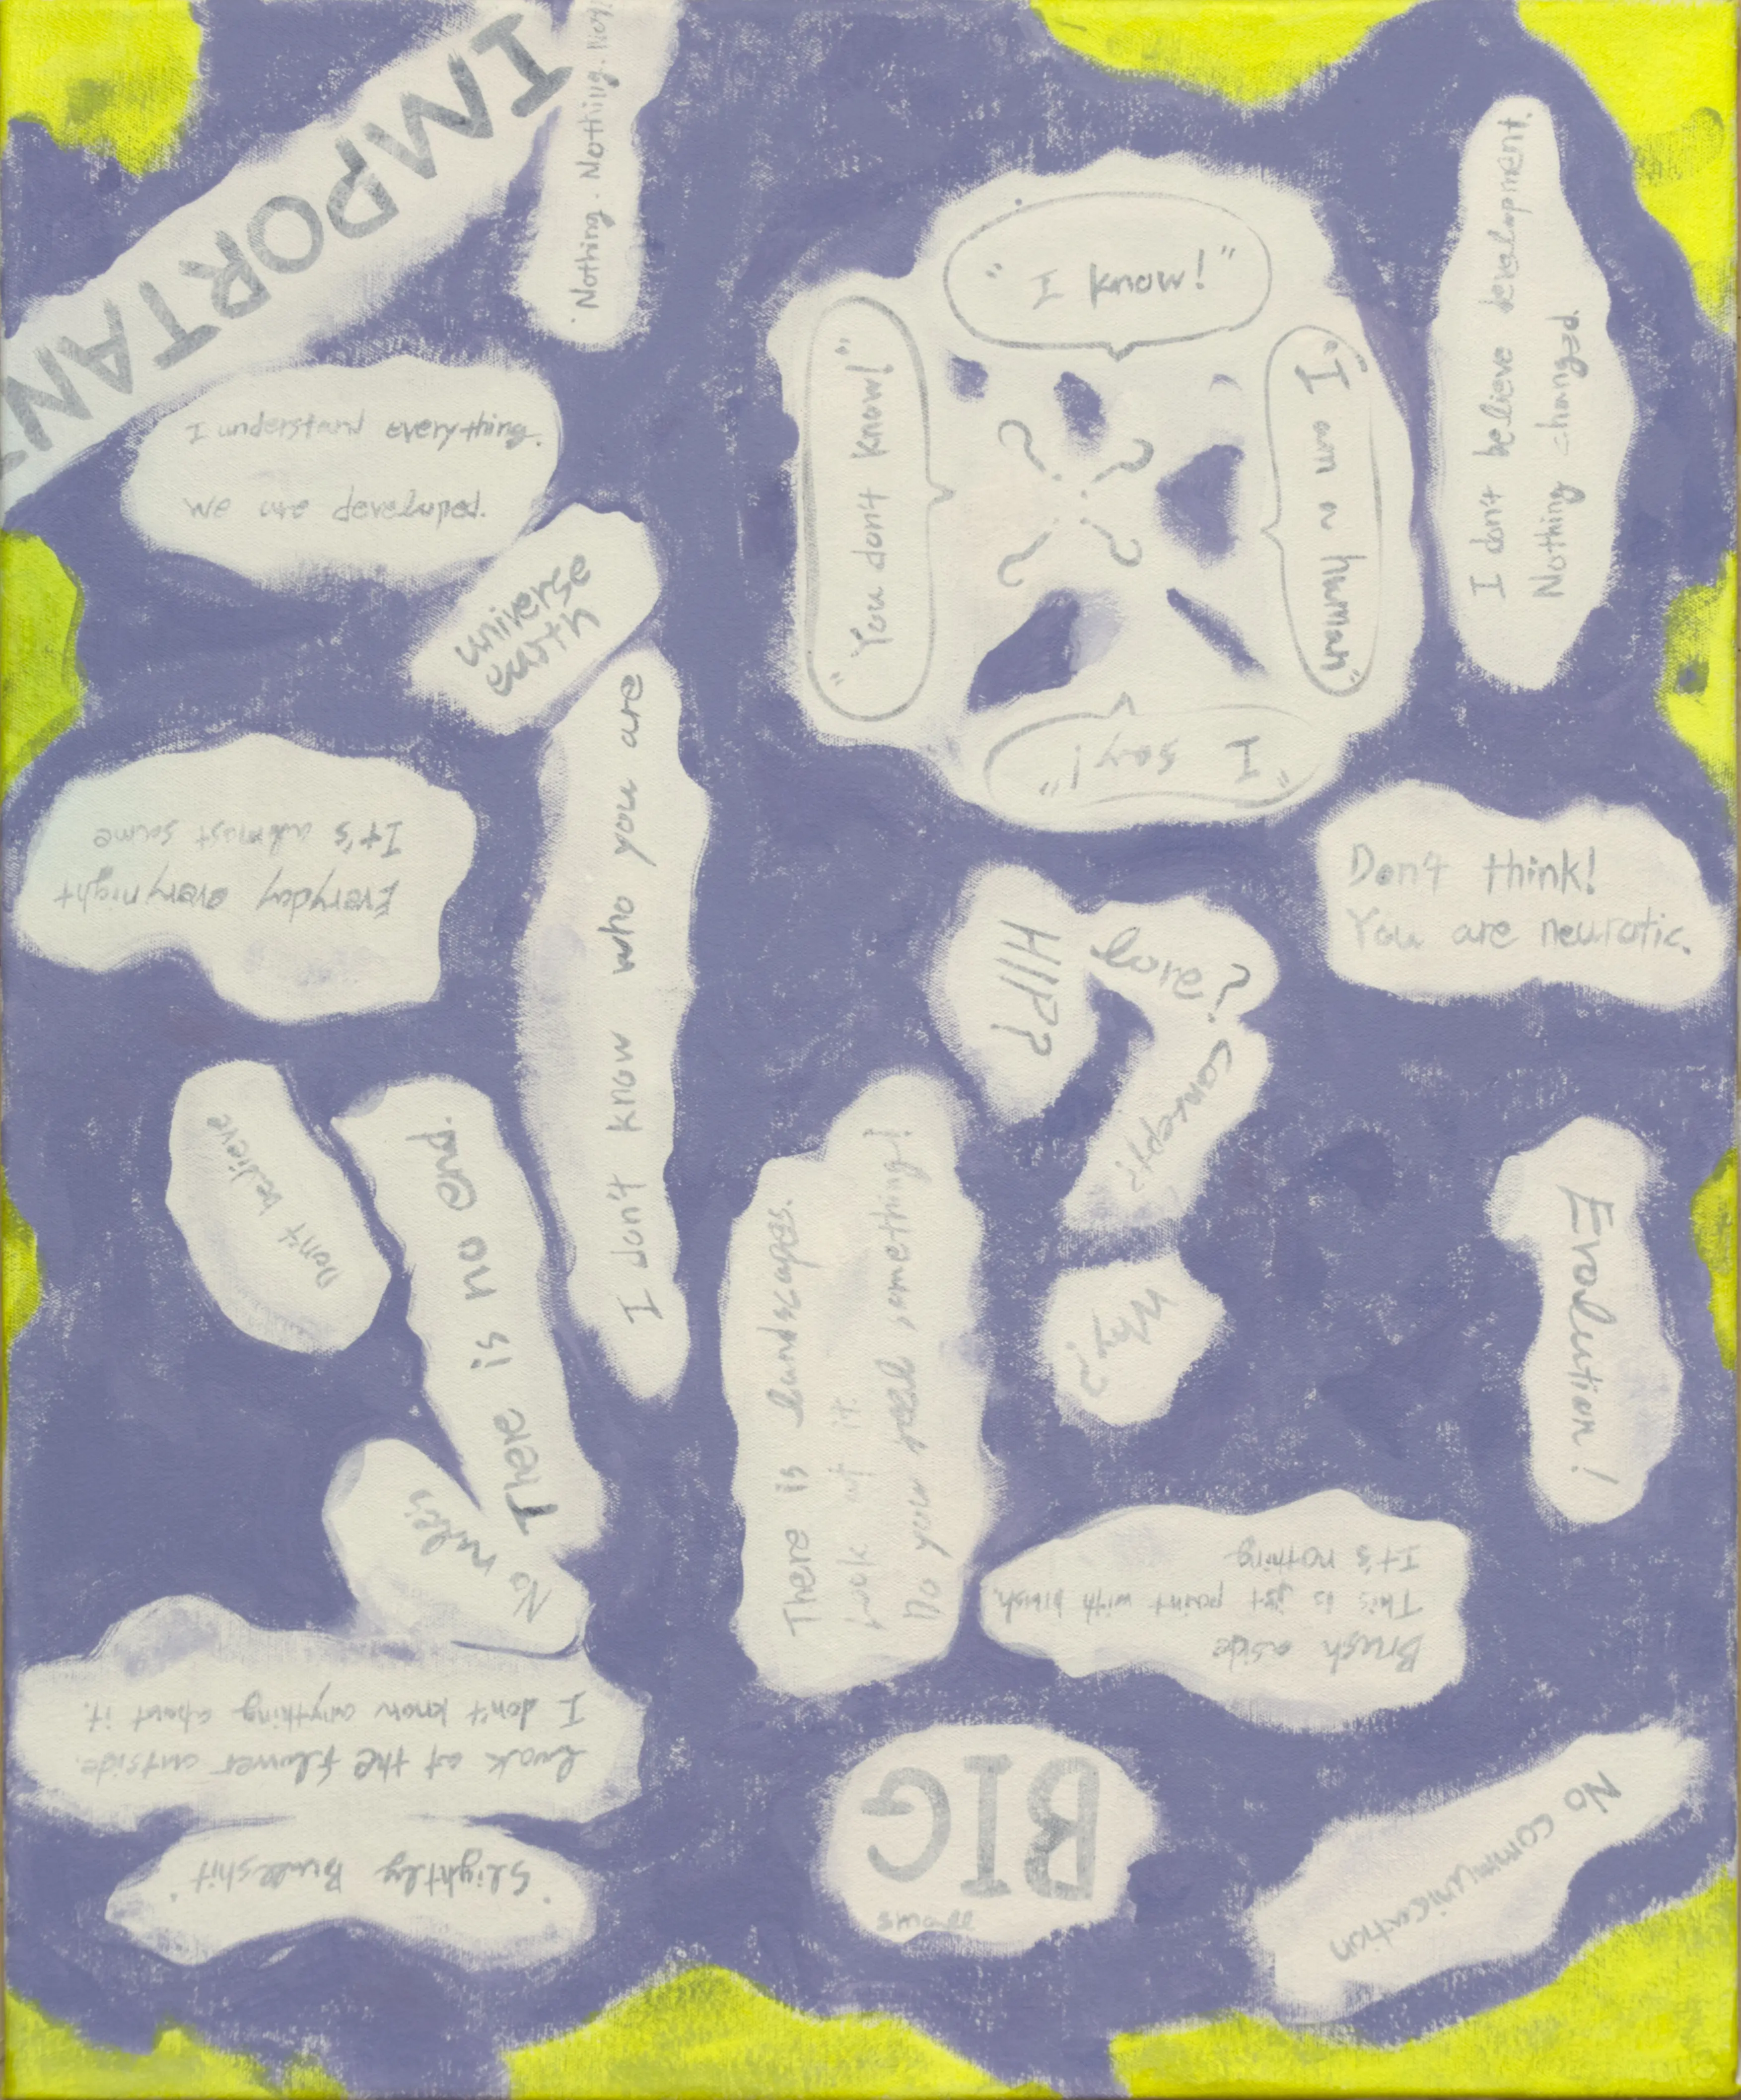 IMPORTAN
Nothing. Nothing.
I understand everything.
We are developed.
universe
earth
"I know!"
"You don't know!"
"I am a human"
"I say!"
? ? ? ?
I don't believe development.
Nothing changed.
Everyday every night
It's almost same
I don't know who you are
Don't think!
You are neurotic.
HIP?
Love?
Concept?
Why?
Don't believe
There is no end.
No rules
There is landscapes.
Look at it.
Do you feel something!
Evolution!
Brush aside
This is just paint with brush.
It's nothing
Look at the flower outside.
I don't know anything about it.
"Slightly Bullshit"
BIG
small
No communication